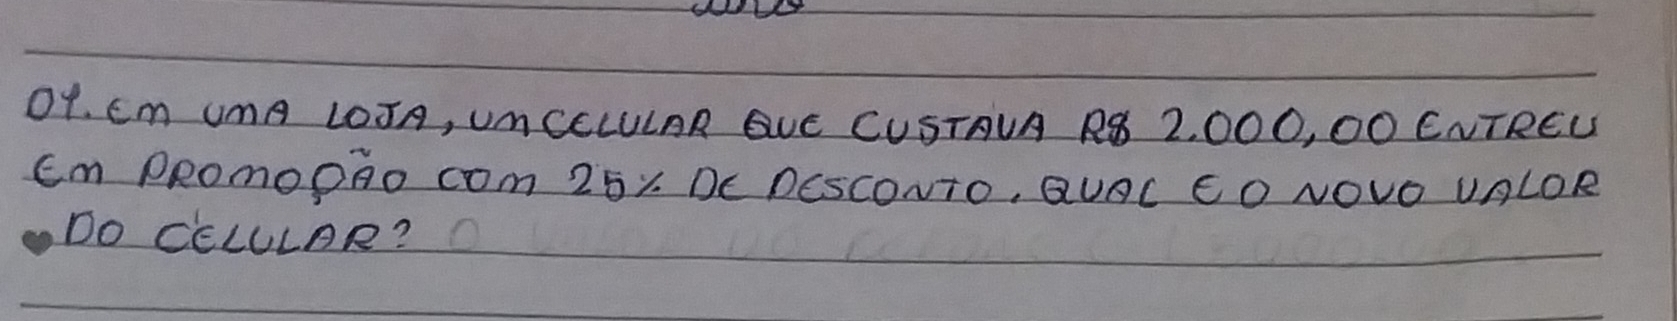 01. EM UMA LOJA, UM CELULAR QUE CUSTAVA R$ 2.000,00 ENTREU
EM PROMOÇÃO COM 25% DE DESCONTO. QUAL E O NOVO VALOR
DO CELULAR?